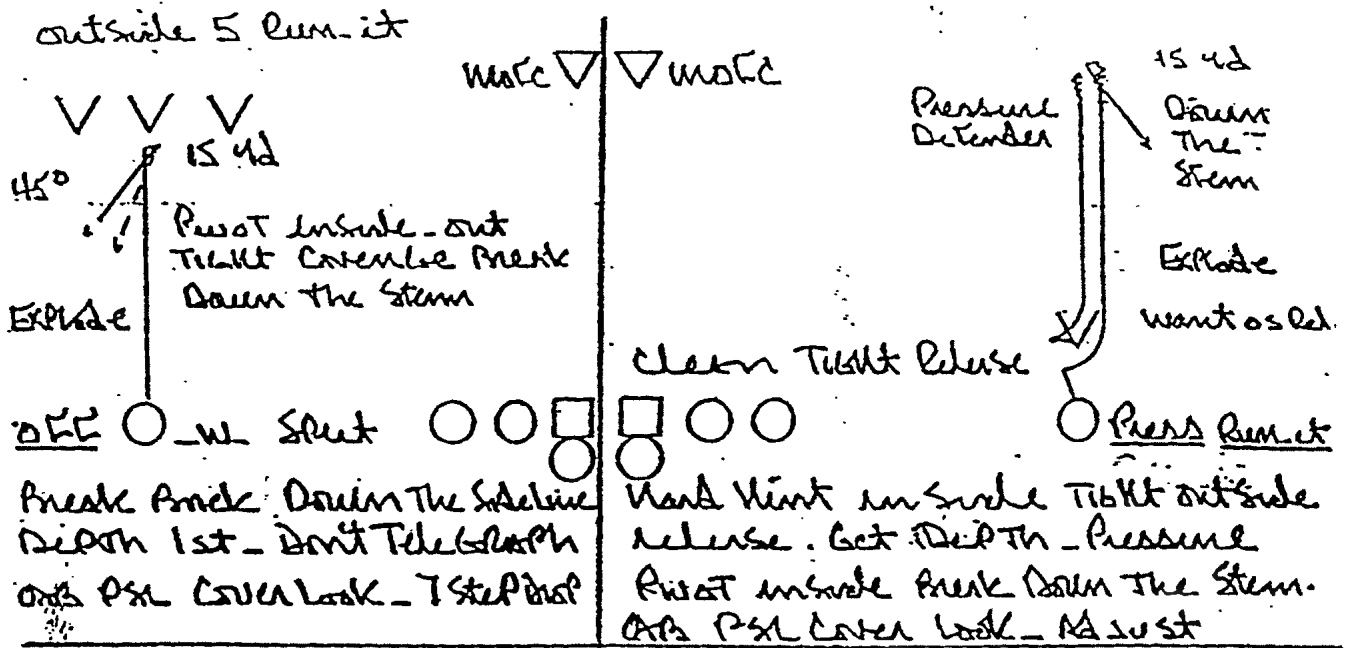 outside 5 Run-it
MOFC
15 yd
45°
Pivot inside-out
Tight Coverage Break
Down The Stem
Explode
OFF
W Split
Break Back Down The Sideline
Depth 1st - Don't Telegraph
QB PSL Cover Look - 7 Step Drop
MOFC
15 yd
Pressure
Defender
Down
The
Stem
Explode
Want OS Rel.
Clean Tight Release
Press Run-it
Hard Hint inside Tight outside
release. Get Depth - Pressure
Pivot inside Break Down The Stem.
QB PSL Cover Look - Adjust